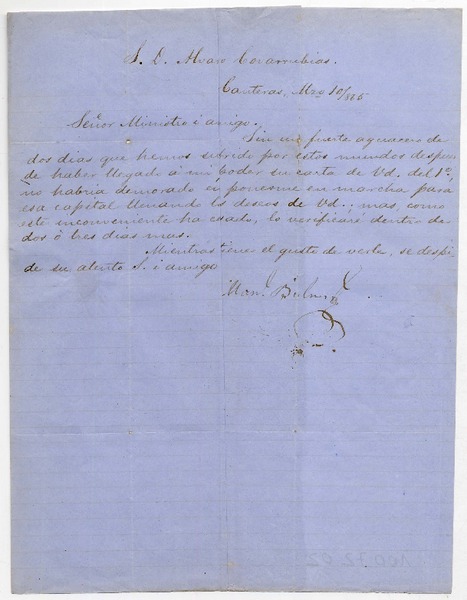 S. D. Alvaro Covarrubias.
Canteras, Mzo 10/865
Señor Ministro i amigo.
Sin un fuerte aguacero de
dos dias que hemos sufrido por estos mundos despues
de haber llegado á mi poder su carta de Vd. del 1º,
no habria demorado en ponerme en marcha para
esa capital llenando ls deseos de Vd.; mas, como
este inconveniente ha csado, lo verificaré dentro de
dos ó tres dias mas.
Mientras tiene el gusto de verle, se despi-
de su atento S. i amigo
Man. Bulnes
100.72.02